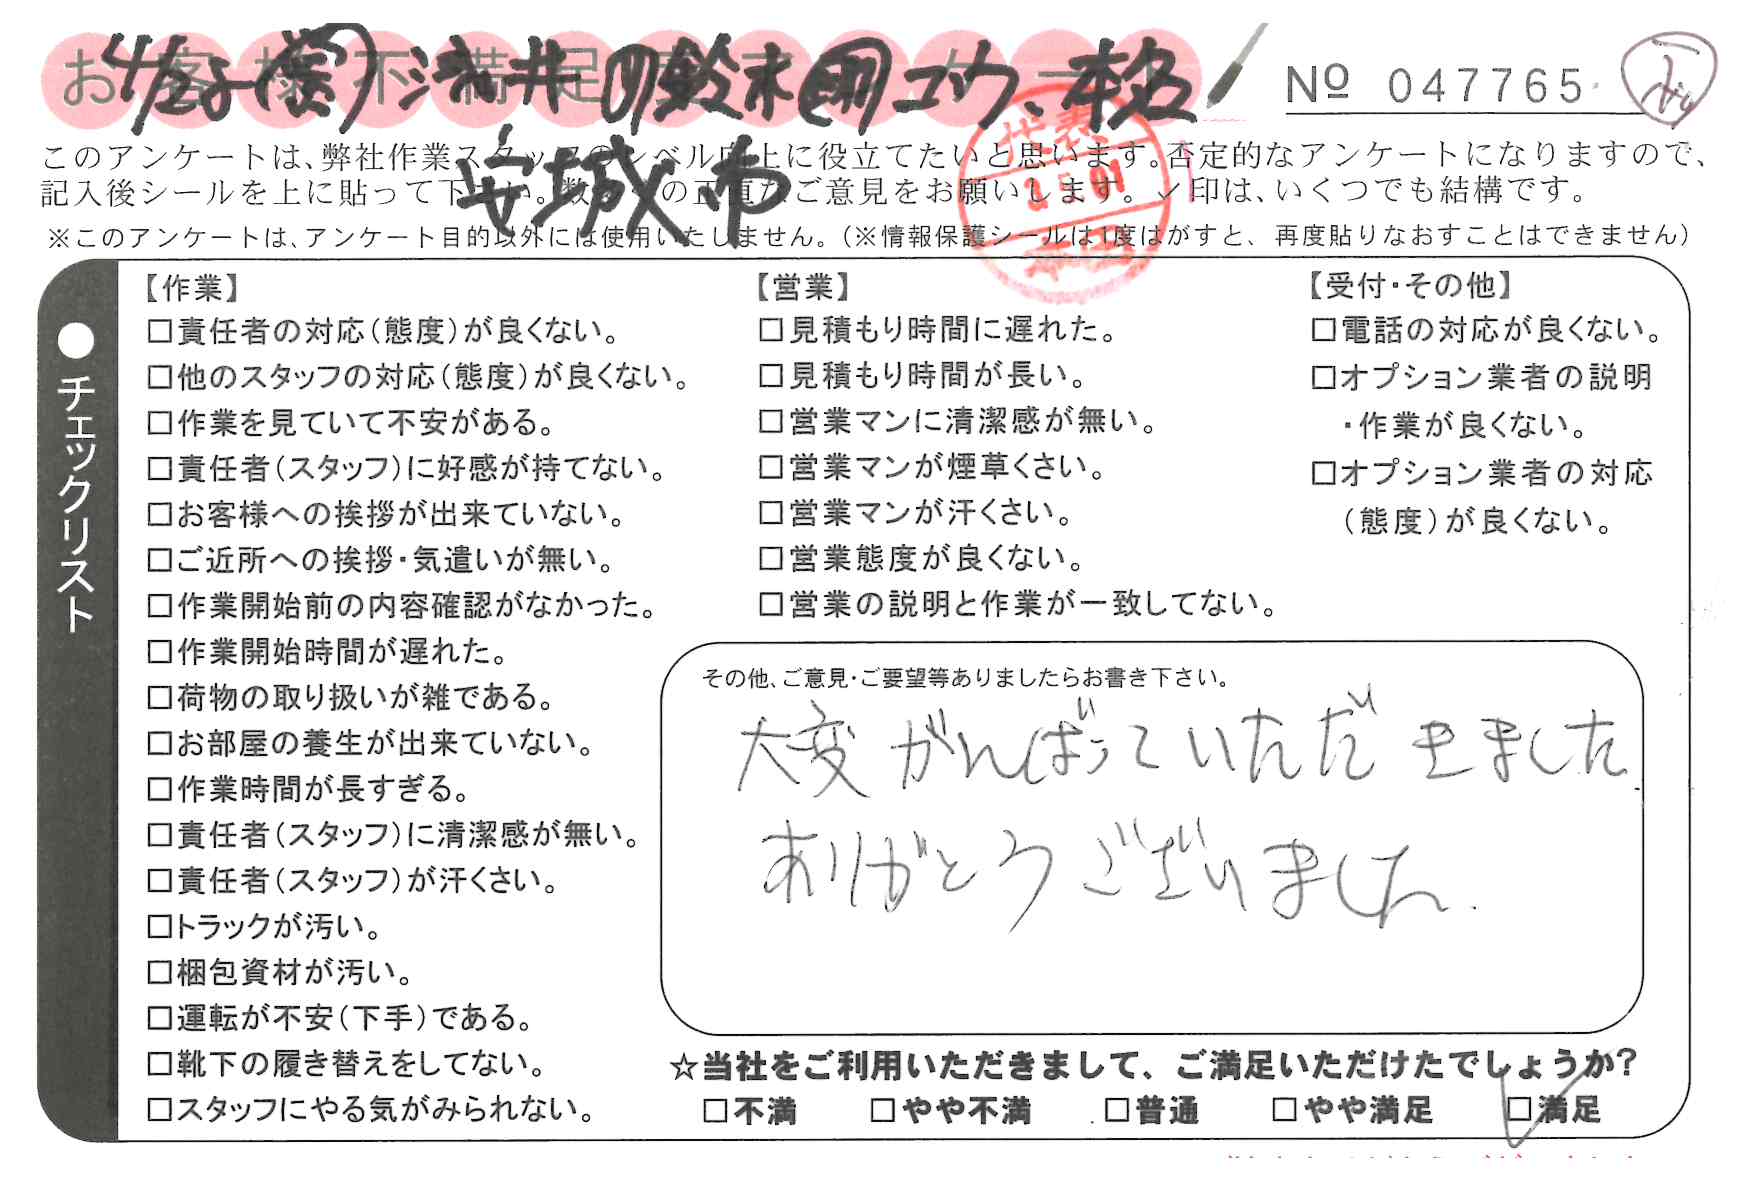 お客様不満足度アンケート
安城市
№ 047765
このアンケートは、弊社作業スタッフのレベル向上に役立てたいと思います。否定的なアンケートになりますので、
記入後シールを上に貼って下さい。数多くの正直なご意見をお願いします。✓印は、いくつでも結構です。
※このアンケートは、アンケート目的以外には使用いたしません。(※情報保護シールは1度はがすと、再度貼りなおすことはできません)
代表
●チェックリスト
【作業】
□責任者の対応(態度)が良くない。
□他のスタッフの対応(態度)が良くない。
□作業を見ていて不安がある。
□責任者(スタッフ)に好感が持てない。
□お客様への挨拶が出来ていない。
□ご近所への挨拶・気遣いが無い。
□作業開始前の内容確認がなかった。
□作業開始時間が遅れた。
□荷物の取り扱いが雑である。
□お部屋の養生が出来ていない。
□作業時間が長すぎる。
□責任者(スタッフ)に清潔感が無い。
□責任者(スタッフ)が汗くさい。
□トラックが汚い。
□梱包資材が汚い。
□運転が不安(下手)である。
□靴下の履き替えをしてない。
□スタッフにやる気がみられない。
【営業】
□見積もり時間に遅れた。
□見積もり時間が長い。
□営業マンに清潔感が無い。
□営業マンが煙草くさい。
□営業マンが汗くさい。
□営業態度が良くない。
□営業の説明と作業が一致してない。
【受付・その他】
□電話の対応が良くない。
□オプション業者の説明
・作業が良くない。
□オプション業者の対応
(態度)が良くない。
その他、ご意見・ご要望等ありましたらお書き下さい。
大変がんばっていただきました
ありがとうございました.
☆当社をご利用いただきまして、ご満足いただけたでしょうか?
□不満 □やや不満 □普通 □やや満足 □満足